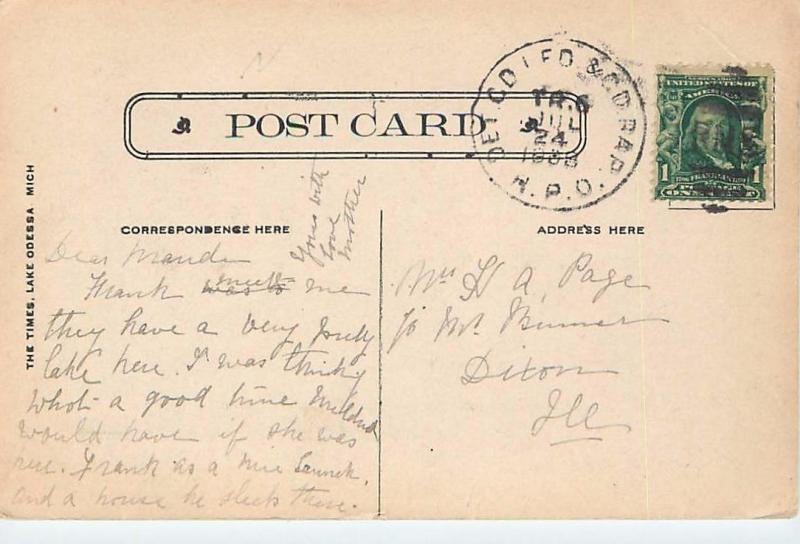 POST CARD
DET. G.D. LED. & G.D. RAP.
TR.6
JUL
24
R.P.O.
UNITED STATES OF
AMERICA
1
FRANKLIN
1
THE TIMES, LAKE ODESSA MICH
CORRESPONDENCE HERE
ADDRESS HERE
Yours with
love
Mother
Dear Maude
Frank meet me
they have a very pretty
lake here. I was thinking
what a good time Mildred
would have if she was
here. Frank as a nice Launch,
and a house he sleeps there.
Mrs H A. Page
Mr
Dixon
Ill